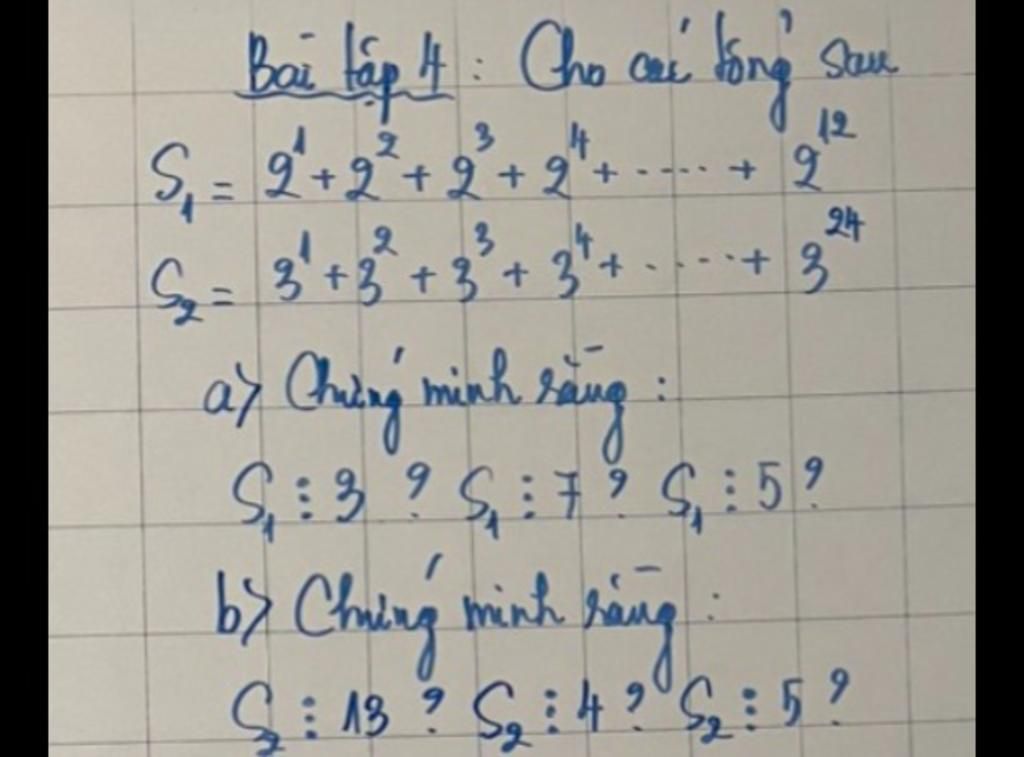 Bài tập 4 : Cho các tổng sau
S₁ = 2¹ + 2² + 2³ + 2⁴ + ..... + 2¹²
S₂ = 3¹ + 3² + 3³ + 3⁴ + ..... + 3²⁴
a) Chứng minh rằng :
S₁ ⋮ 3 ? S₁ ⋮ 7 ? S₁ ⋮ 5 ?
b) Chứng minh rằng :
S₂ ⋮ 13 ? S₂ ⋮ 4 ? S₂ ⋮ 5 ?